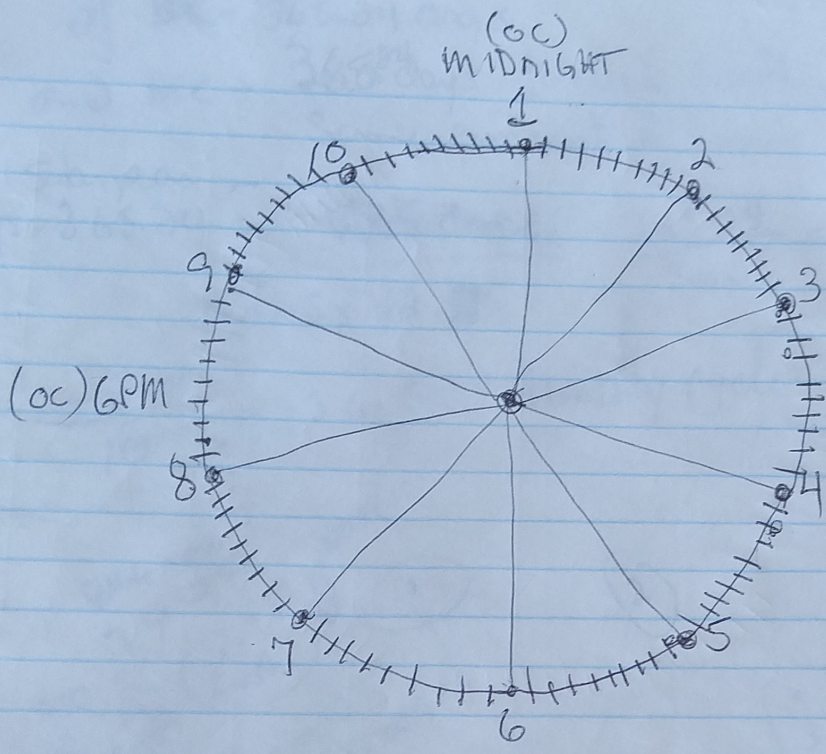 (OC)
MIDNIGHT
1
2
3
4
5
6
7
8
(OC) 6PM
9
10